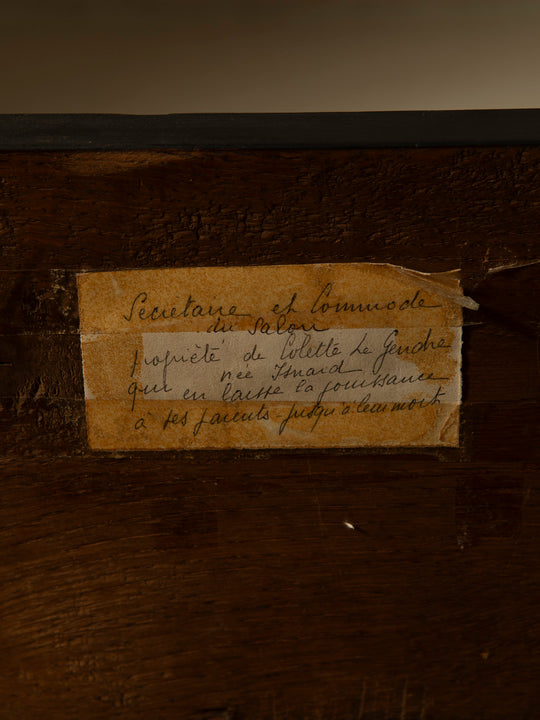 Secrétaire et Commode
du Salon
propriété de Colette Le Gendre
née Isnard
qui en laisse la jouissance
à ses parents jusqu'à leur mort